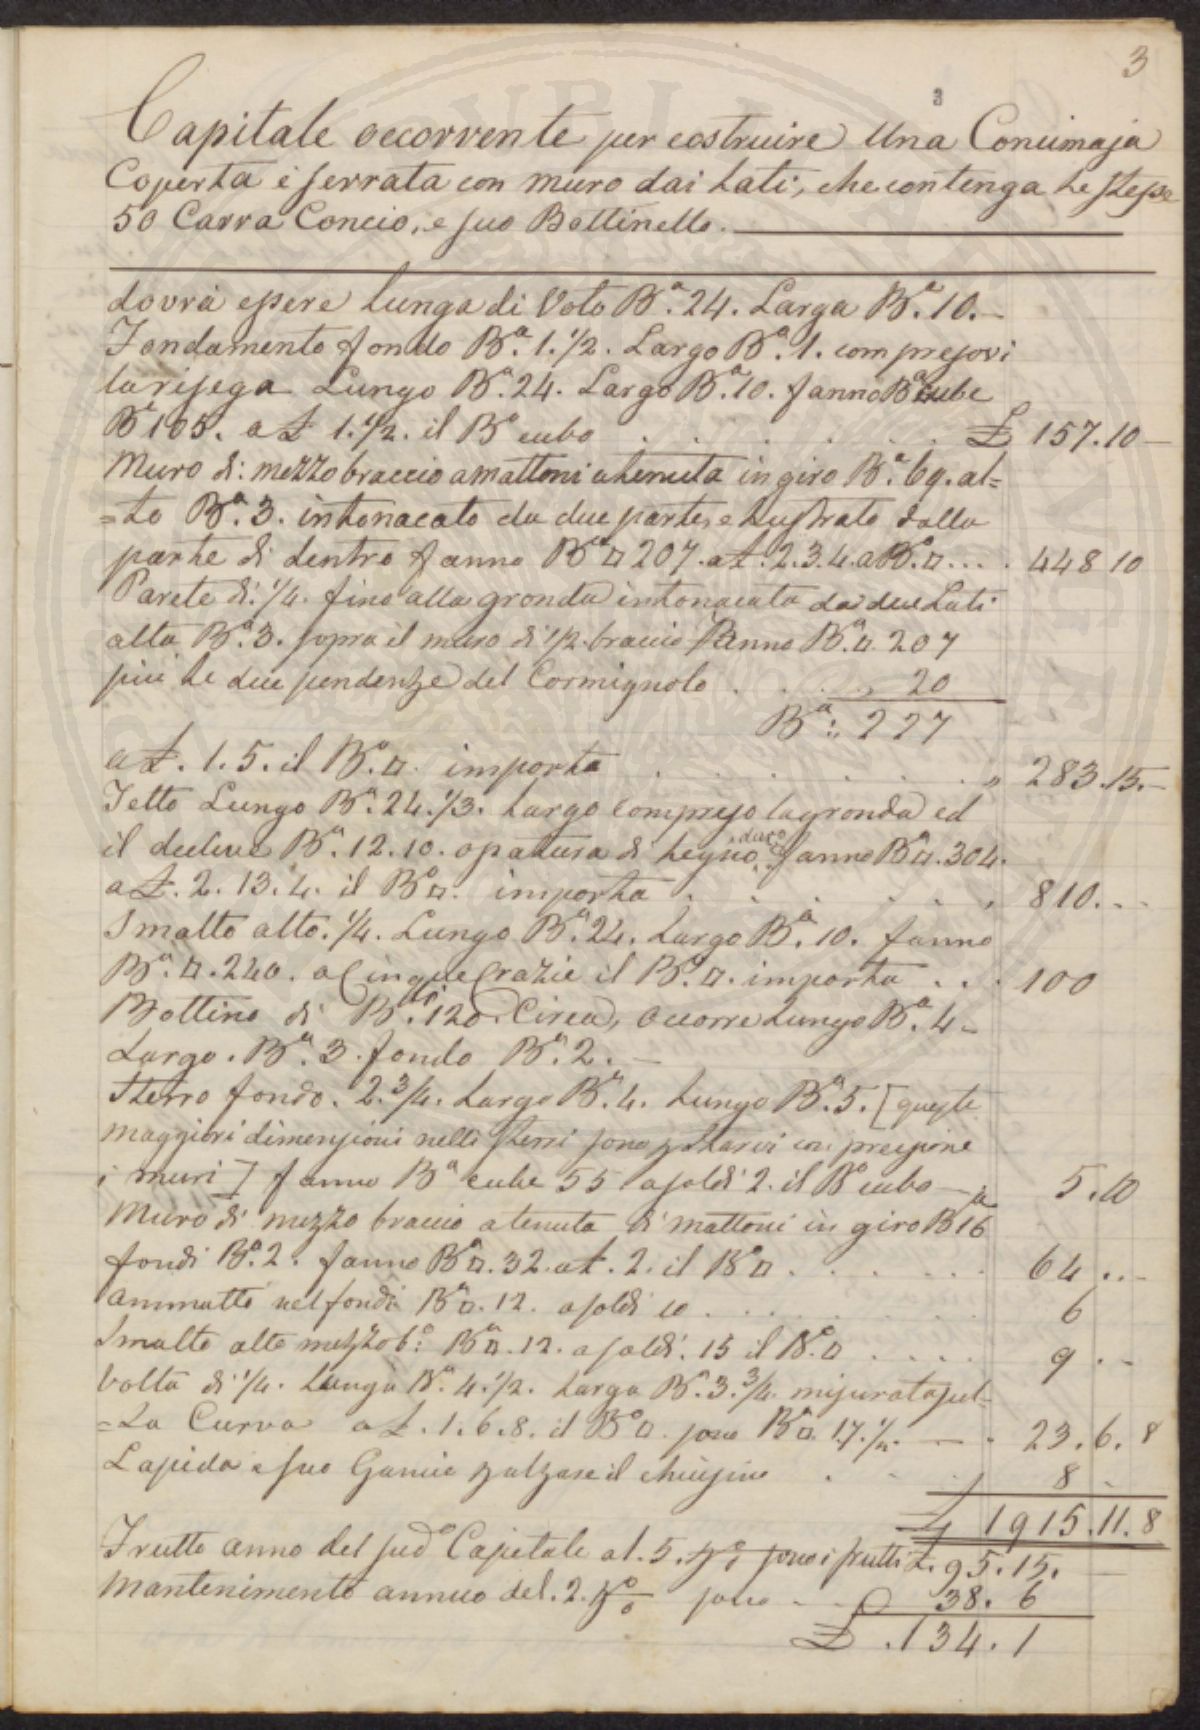 3
3
Capitale occorrente per costruire Una Concimaja
Coperta e serrata con muro dai Lati, che contenga le stesse
50 Carra Concio, e suo Bottinello.
dovrà essere lunga di Voto Bª. 24. Larga Bª. 10. –
Fondamento fondo Bª. 1. 1/2. Largo Bª. 1. compresovi
la risega Lungo Bª. 24. Largo Bª. 10. fanno Bª cube
Bª 105. a £ 1. 1/2. il Bº cubo . . . . . . . £ 157.10 –
Muro di mezzo braccio a mattoni a tenuta in giro Bª. 69. al=
=to Bª. 3. intonacato da due parte, e lustrato dalla
parte di dentro fanno Bª □ 207. a £. 2.3.4. a Bº. □ . . . . 448 10
Parete di 1/4. fino alla gronda intonacata dai due Lati
alta Bª. 3. sopra il muro di 1/2. braccio fanno Bª. □. 207
più le due pendenze del Cormignolo . . . . „ 20
Bª: 227
a £. 1. 5. il Bº. □. importa . . . . . . . . „ 283.15.–
Tetto Lungo Bª. 24. 1/3. largo compreso la gronda ed
il declive Bª. 12. 10. opatura di legno duro fanno Bª □. 304.
a £. 2. 13. 4. il Bº □. importa . . . . . . . 810. . -
Smalto alto. 1/4. Lungo Bª. 24. largo Bª. 10. fanno
Bª. □. 240. a Cinque Crazie il Bº. □. importa . . . 100
Bottino di Bˡⁱ. 120. Circa, occorre Lungo Bª. 4 –
Largo. Bª. 3. fondo Bª. 2. –
Sterro fondo. 2. 3/4. Largo Bª. 4. lungo Bª. 5. [queste
maggiori dimensioni nelli sterri sono p starvi con precisione
i muri] fanno Bª cube 55 a soldi 2. il Bº cubo – 5. 10
Muro di mezzo braccio a tenuta di mattoni in giro Bª 16
fondi Bª. 2. fanno Bª □. 32. a £. 2. il Bº □ . . . . . . . 64 . . -
ammatto nel fondi Bª □. 12. a soldi 10 . . . . . . . . 6
Smalto alto mezzo bº: Bª □. 12. a soldi. 15 il Bº. □ . . . . 9 . -
Volta di 1/4. Lunga Bª. 4. 1/2. larga Bª. 3. 3/4. misurata sul=
=la Curva a £. 1. 6. 8. il Bº □. sono Bª □. 17. 1/2. – – . 23. 6. 8
Lapida e suo Gancio p alzare il chiusino . . . . 8 .
£ 1915.11.8
Frutto anno del sudº Capitale al. 5. p% sono i frutti £. 95.15. –
Mantenimento annuo del. 2. p% sono - - 38. 6
£ . 134. 1